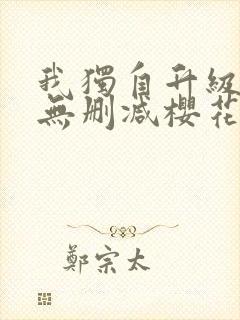 我獨自升級
無刪减櫻花
鄭宗太